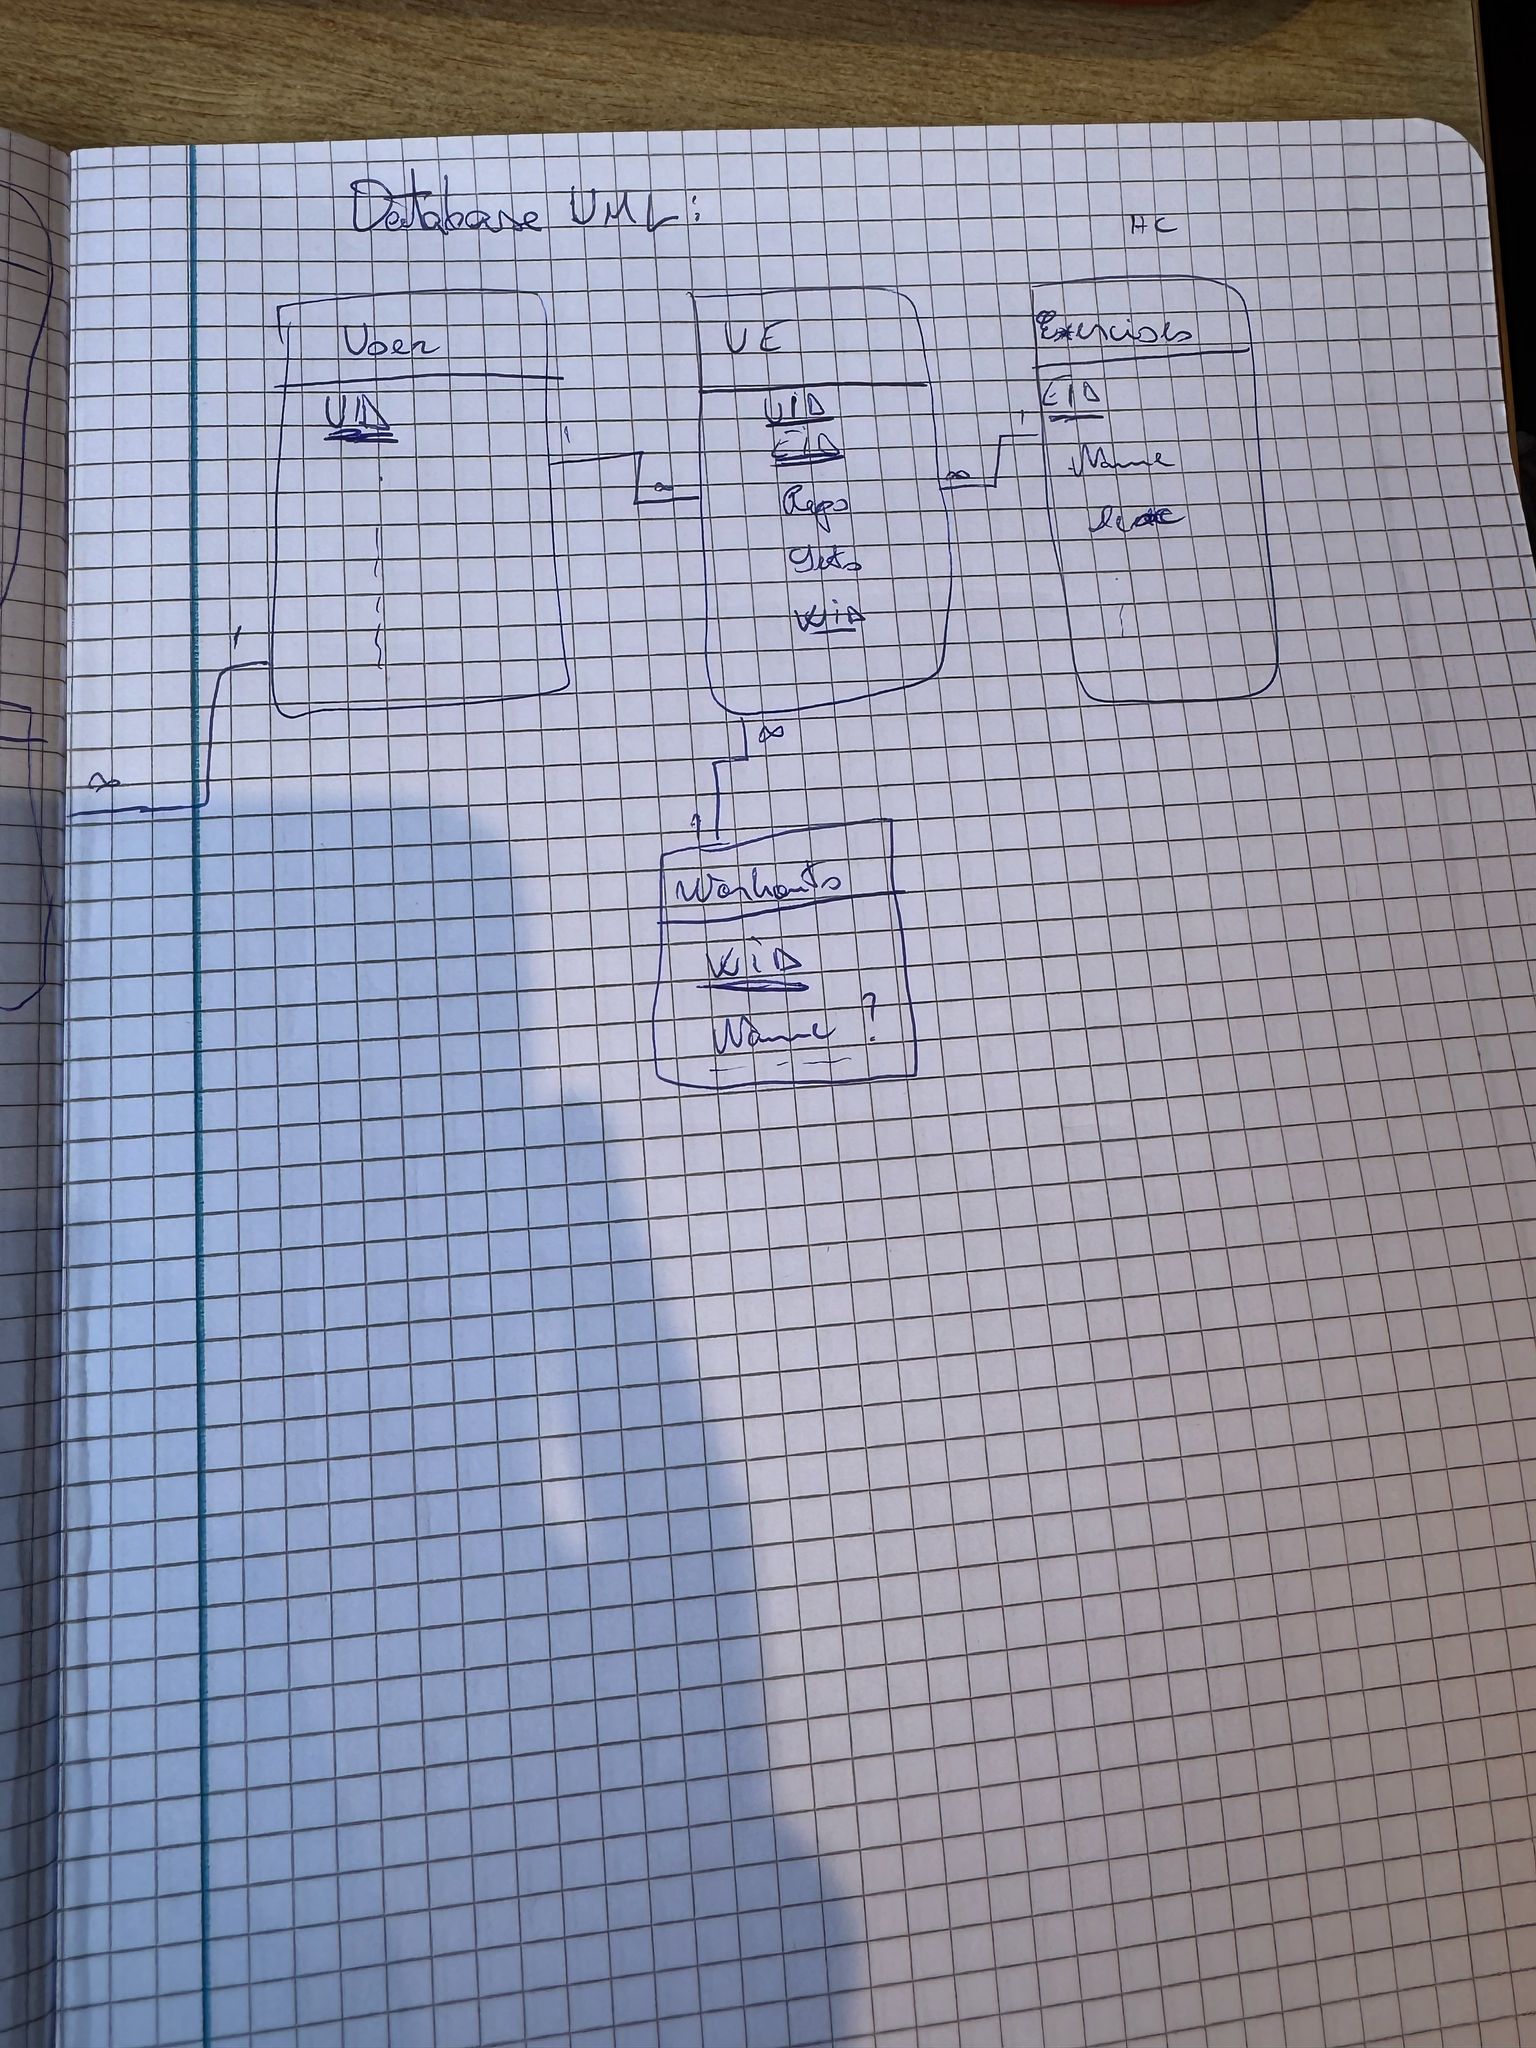 Database UML:
HC
User
UID
1
∞
1
∞
UE
UID
EID
Reps
Sets
WiD
∞
1
Exercises
EID
Name
∞
1
Workouts
WiD
Name ?